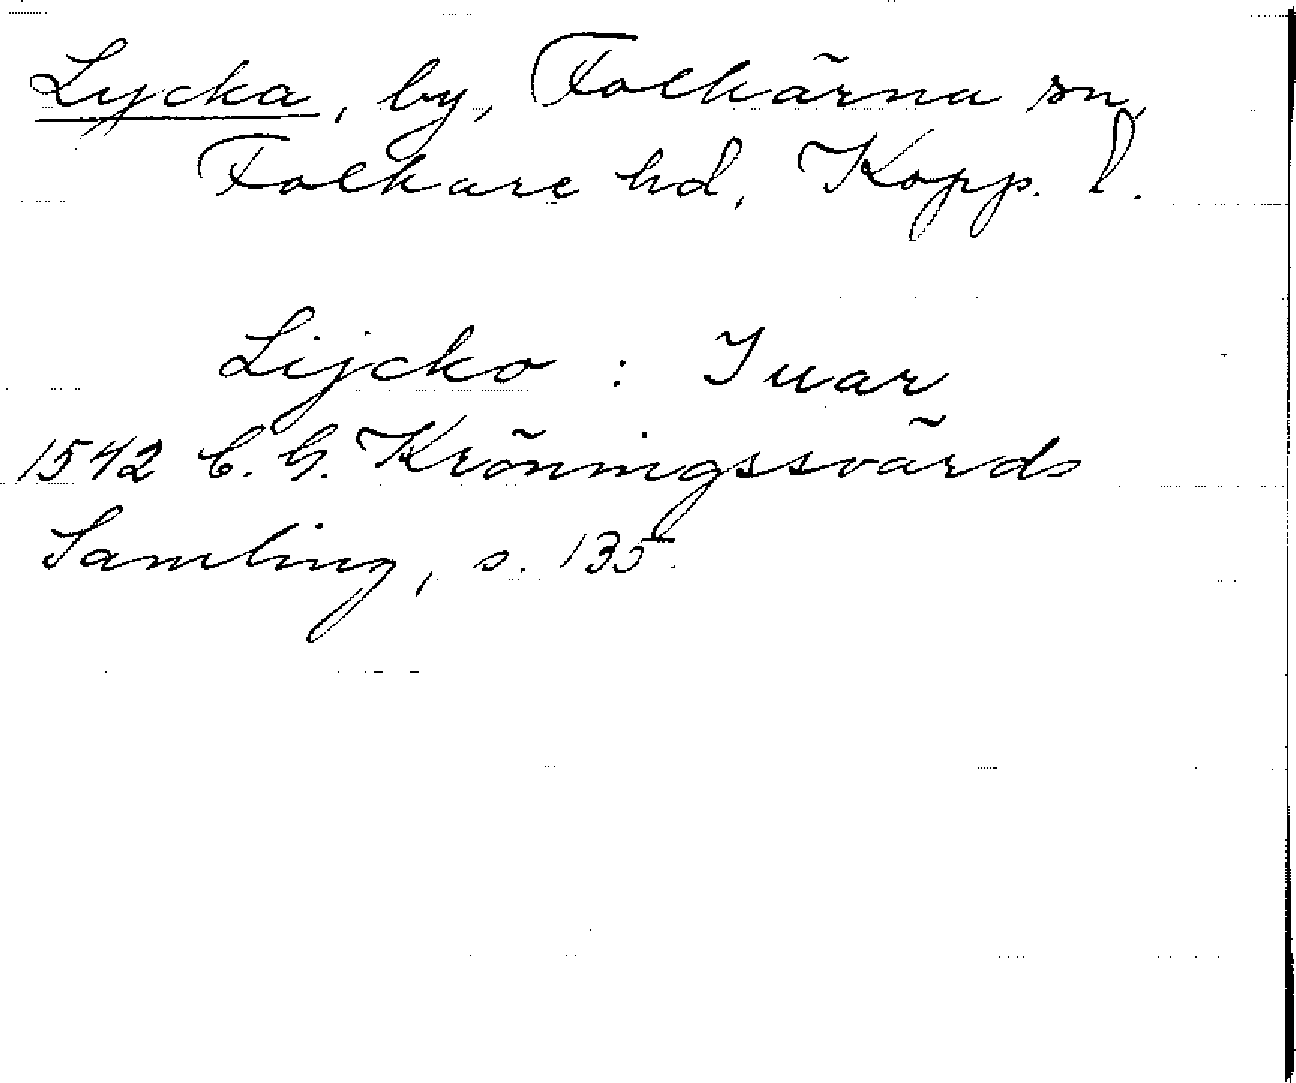 Lycka, by, Folkärna sn,
Folkare hd, Kopp. l.
Lijcko : Iuar
1542 C. G. Kröningssvärds
Samling, s. 135.